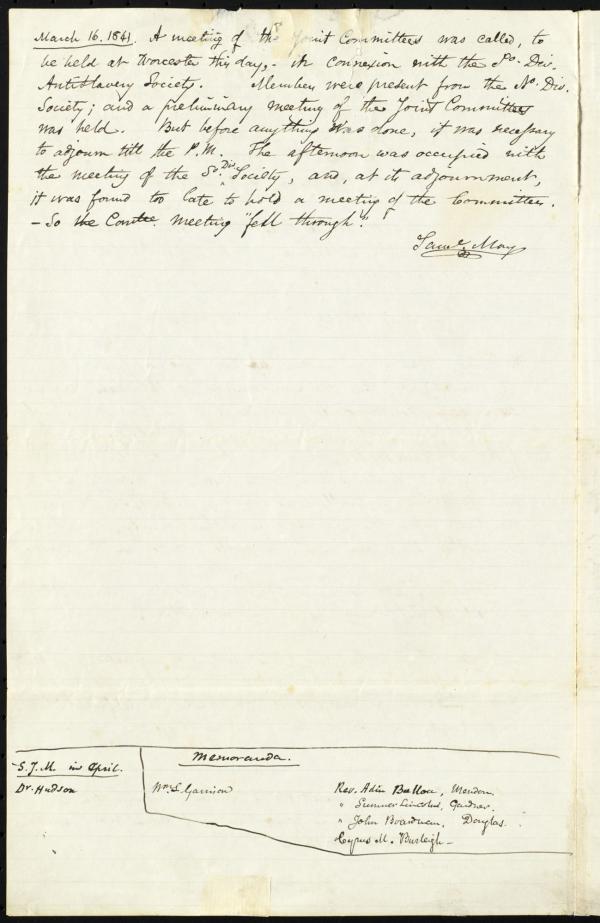 March 16. 1841. A meeting of the Joint Committees was called, to
be held at Worcester this day, - in connexion with the So. Div.
Antislavery Society. Members were present from the No. Div.
Society; and a preliminary meeting of the Joint Committees
was held. But before anything was done, it was necessary
to adjourn till the P.M. The afternoon was occupied with
the meeting of the So. Div. Society, and, at its adjournment,
it was found too late to hold a meeting of the Committees.
- So the Comtee. meeting "fell through".
Saml. May
Memoranda.
S. J. M. in April.
Dr. Hudson
Wm. L. Garrison
Rev. Adin Ballou, Mendon.
" Sumner Lincoln, Gardner.
" John Boardman, Douglas.
Cyrus M. Burleigh -